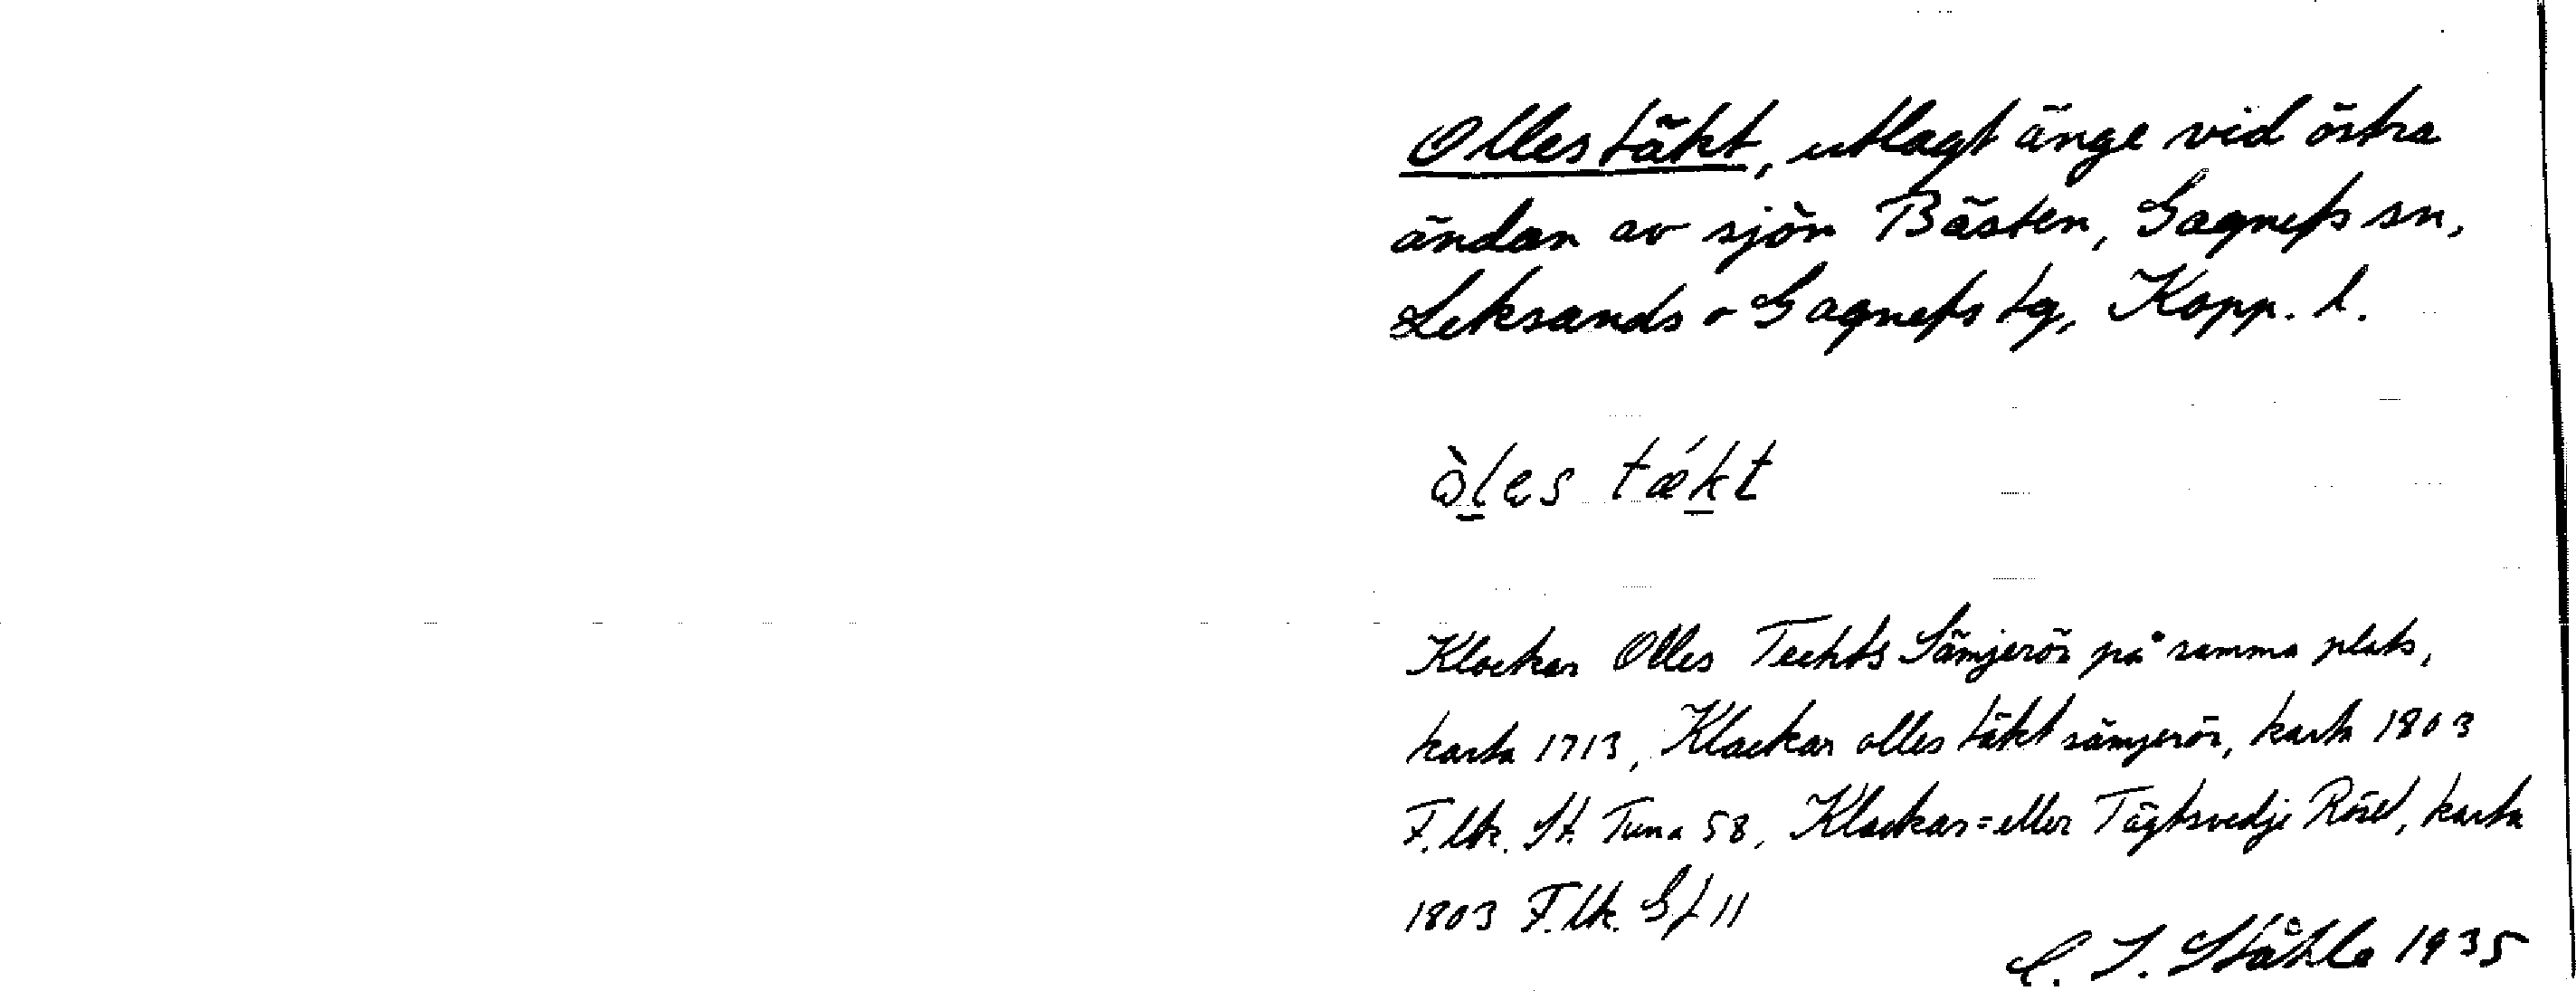 Olles täkt, utlagt änge vid östra
ändan av sjön Bästen, Gagnefs sn,
Leksands o Gagnefs tg, Kopp. l.
ò̱les tǽḵt
Klockar Olles Teckts Sämjerör på samma plats,
karta 1713, Klockar olles täkt sämjerör, karta 1803
F. ltk. St. Tuna 58, Klockar= eller Tägtsvedje Röset, karta
1803 F. ltk. Gf 11
C. I. Ståhle 1935